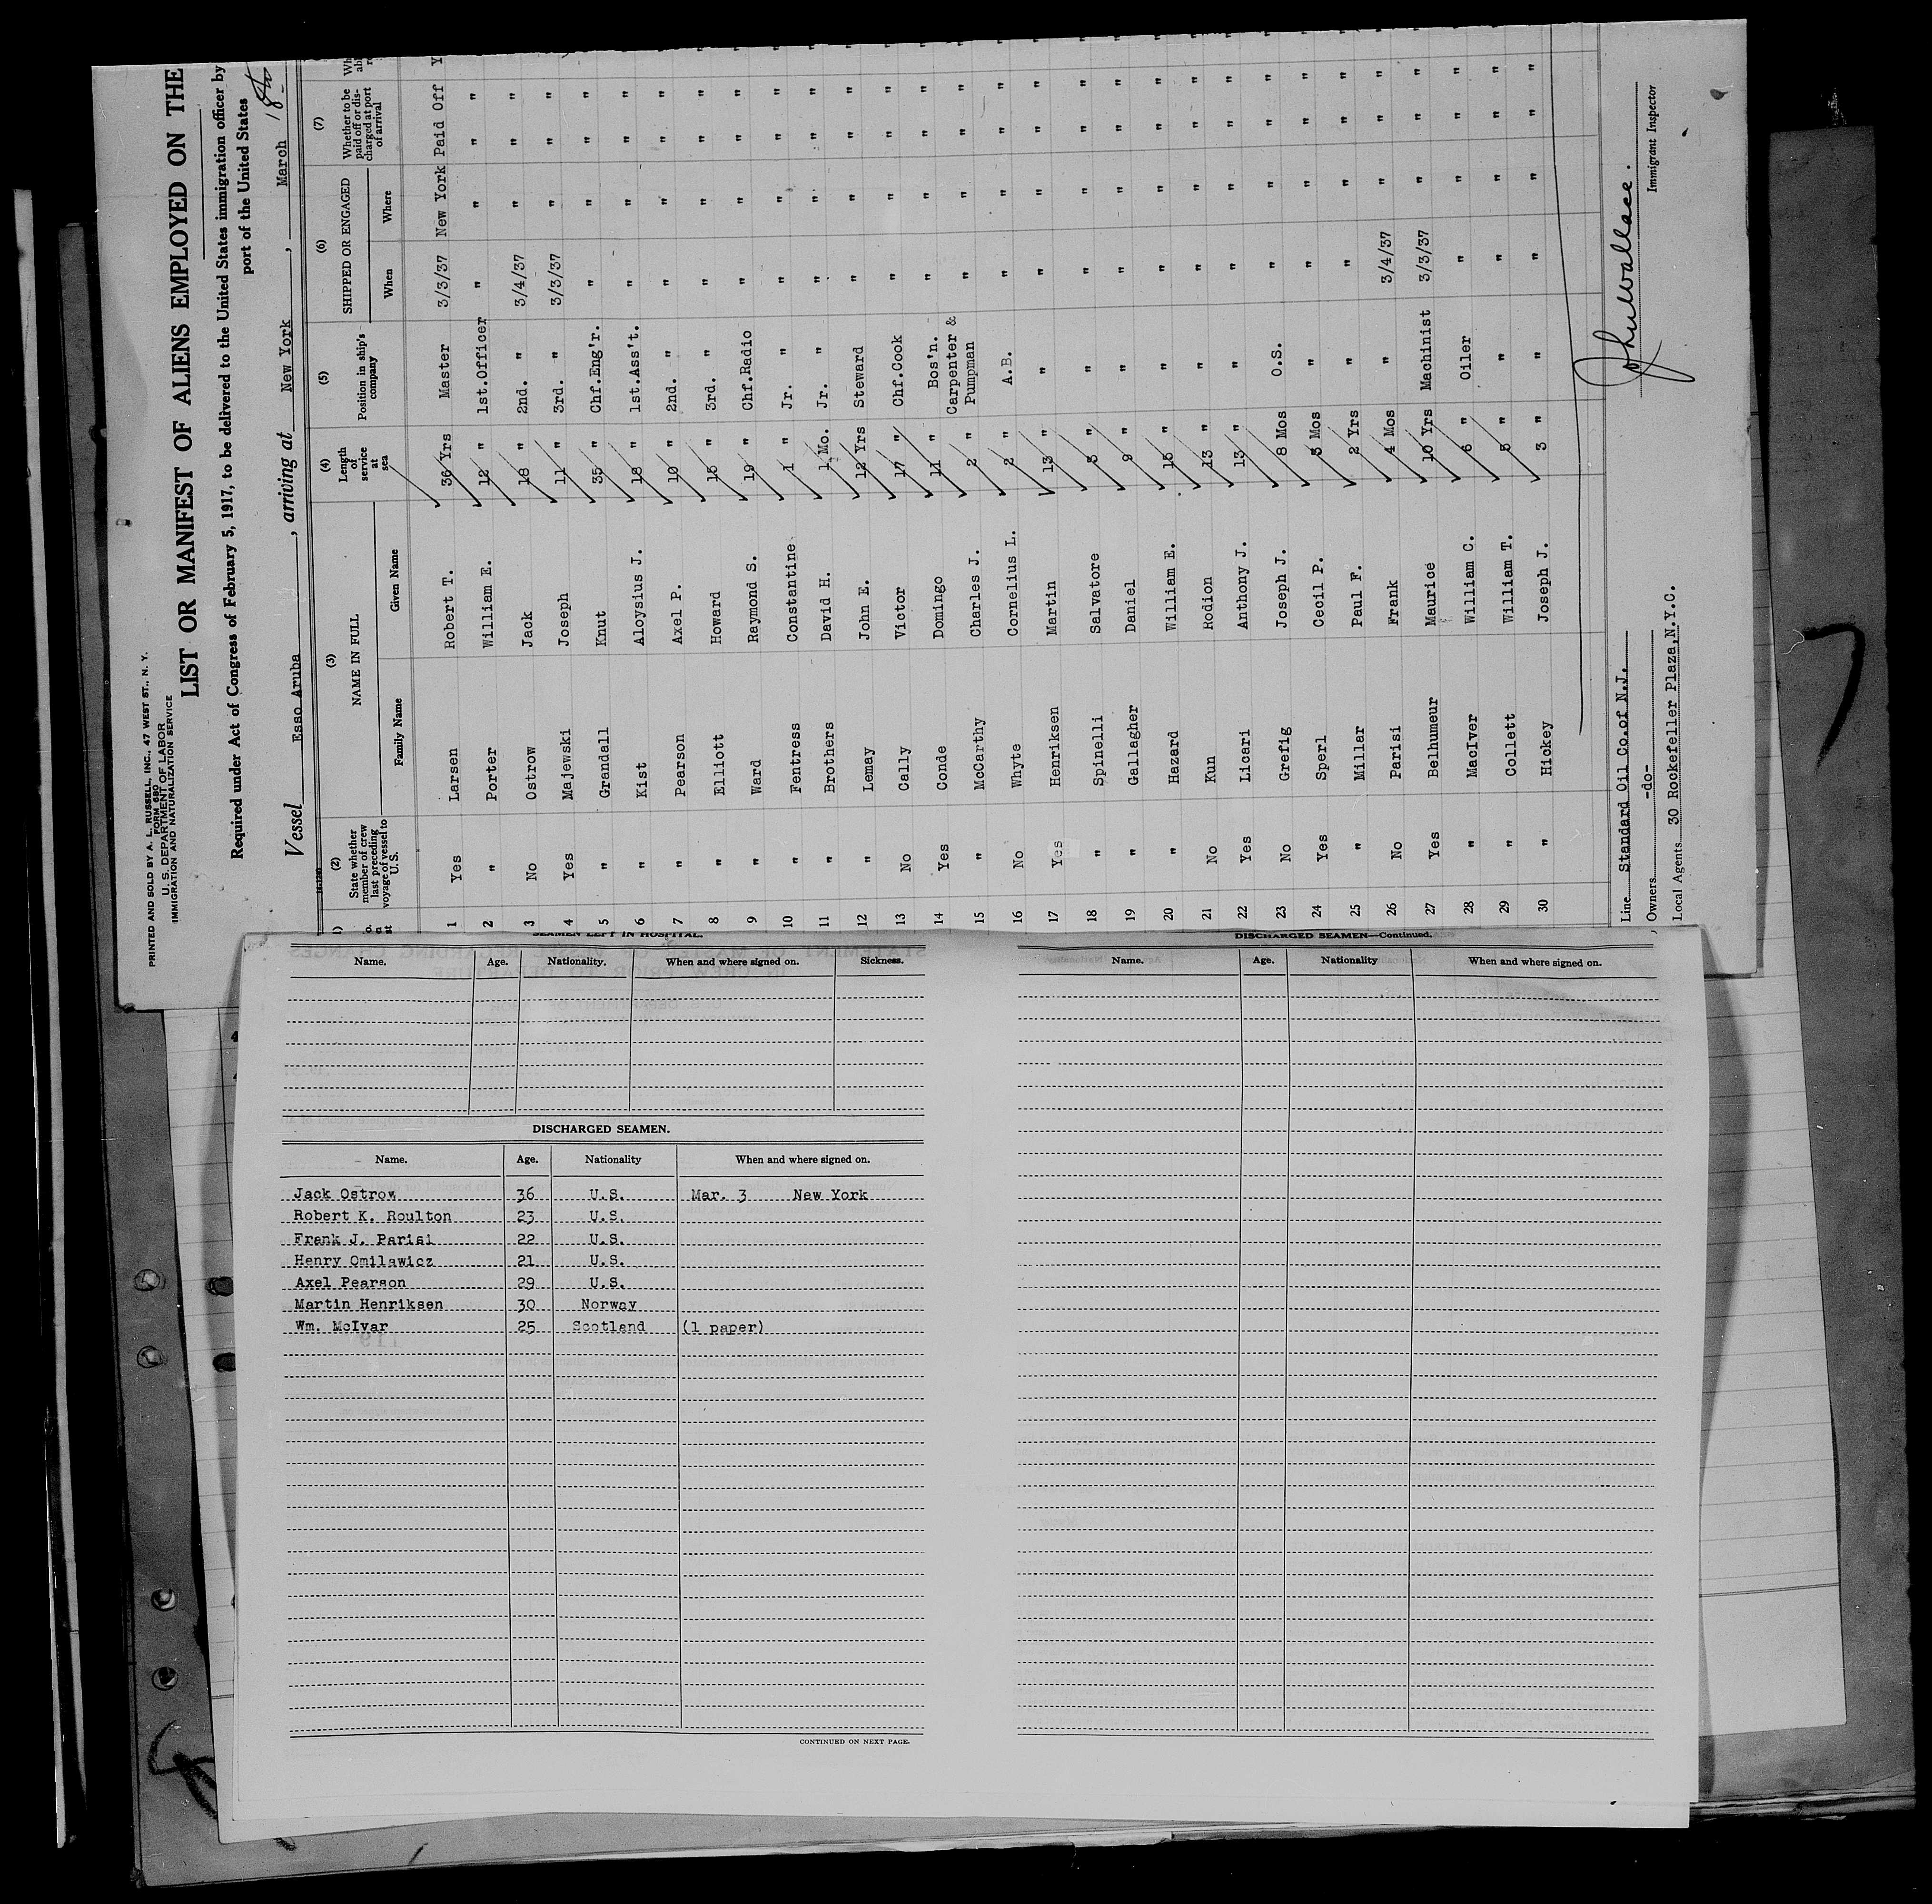 PRINTED AND SOLD BY A. L. RUSSELL, INC., 47 WEST ST., N. Y.
FORM 680
U. S. DEPARTMENT OF LABOR
IMMIGRATION AND NATURALIZATION SERVICE
LIST OR MANIFEST OF ALIENS EMPLOYED ON THE
Required under Act of Congress of February 5, 1917, to be delivered to the United States immigration officer by
port of the United States
Vessel Esso Aruba, arriving at New York, March 18th
(2) (3) (4) (5) (6) (7)
State whether member of crew last preceding voyage of vessel to U.S. NAME IN FULL Length of service at sea Position in ship's company SHIPPED OR ENGAGED Whether to be paid off or discharged at port of arrival
Family Name Given Name When Where
1 Yes Larsen Robert T. 36 Yrs Master 3/3/37 New York Paid Off Y
2 " Porter William E. 12 " 1st.Officer " " " "
3 No Ostrow Jack 18 " 2nd. " 3/4/37 " " "
4 Yes Majewski Joseph 11 " 3rd. " 3/3/37 " " "
5 " Grandall Knut 35 " Chf.Eng'r. " " " "
6 " Kist Aloysius J. 18 " 1st.Ass't. " " " "
7 " Pearson Axel P. 10 " 2nd. " " " " "
8 " Elliott Howard 15 " 3rd. " " " " "
9 " Ward Raymond S. 19 " Chf.Radio " " " "
10 " Fentress Constantine 1 " Jr. " " " " "
11 " Brothers David H. 1 Mo. Jr. " " " " "
12 " Lemay John E. 12 Yrs Steward " " " "
13 No Cally Victor 17 " Chf.Cook " " " "
14 Yes Conde Domingo 11 " Bos'n. " " " "
15 " McCarthy Charles J. 2 " Carpenter & Pumpman " " " "
16 No Whyte Cornelius L. 2 " A.B. " " " "
17 Yes Henriksen Martin 13 " " " " " "
18 " Spinelli Salvatore 3 " " " " " "
19 " Gallagher Daniel 9 " " " " " "
20 " Hazard William E. 15 " " " " " "
21 No Kun Rodion 13 " " " " " "
22 Yes Licari Anthony J. 13 " " " " " "
23 No Grefig Joseph J. 8 Mos O.S. " " " "
24 Yes Sperl Cecil P. 3 Mos " " " " "
25 " Millar Paul F. 2 Yrs " " " " "
26 No Parisi Frank 4 Mos " 3/4/37 " " "
27 Yes Belhumeur Maurice 10 Yrs Machinist 3/3/37 " " "
28 " MacIver William C. 6 " Oiler " " " "
29 " Collett William T. 5 " " " " " "
30 " Hickey Joseph J. 3 " " " " " "
Line Standard Oil Co.of N.J.
Owners -do-
Local Agents 30 Rockefeller Plaza,N.Y.C.
Jhuwallace.
Immigrant Inspector
SEAMEN LEFT IN HOSPITAL.
Name. Age. Nationality. When and where signed on. Sickness.
DISCHARGED SEAMEN.
Name. Age. Nationality When and where signed on.
Jack Ostrow 36 U.S. Mar. 3 New York
Robert K. Roulton 23 U.S.
Frank J. Parisi 22 U.S.
Henry Omilawicz 21 U.S.
Axel Pearson 29 U.S.
Martin Henriksen 30 Norway
Wm. McIvar 25 Scotland (1 paper)
CONTINUED ON NEXT PAGE.
DISCHARGED SEAMEN—Continued.
Name. Age. Nationality When and where signed on.